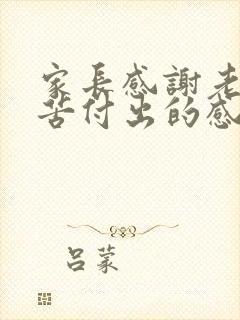 家長感謝老
苦付出的感
呂蒙